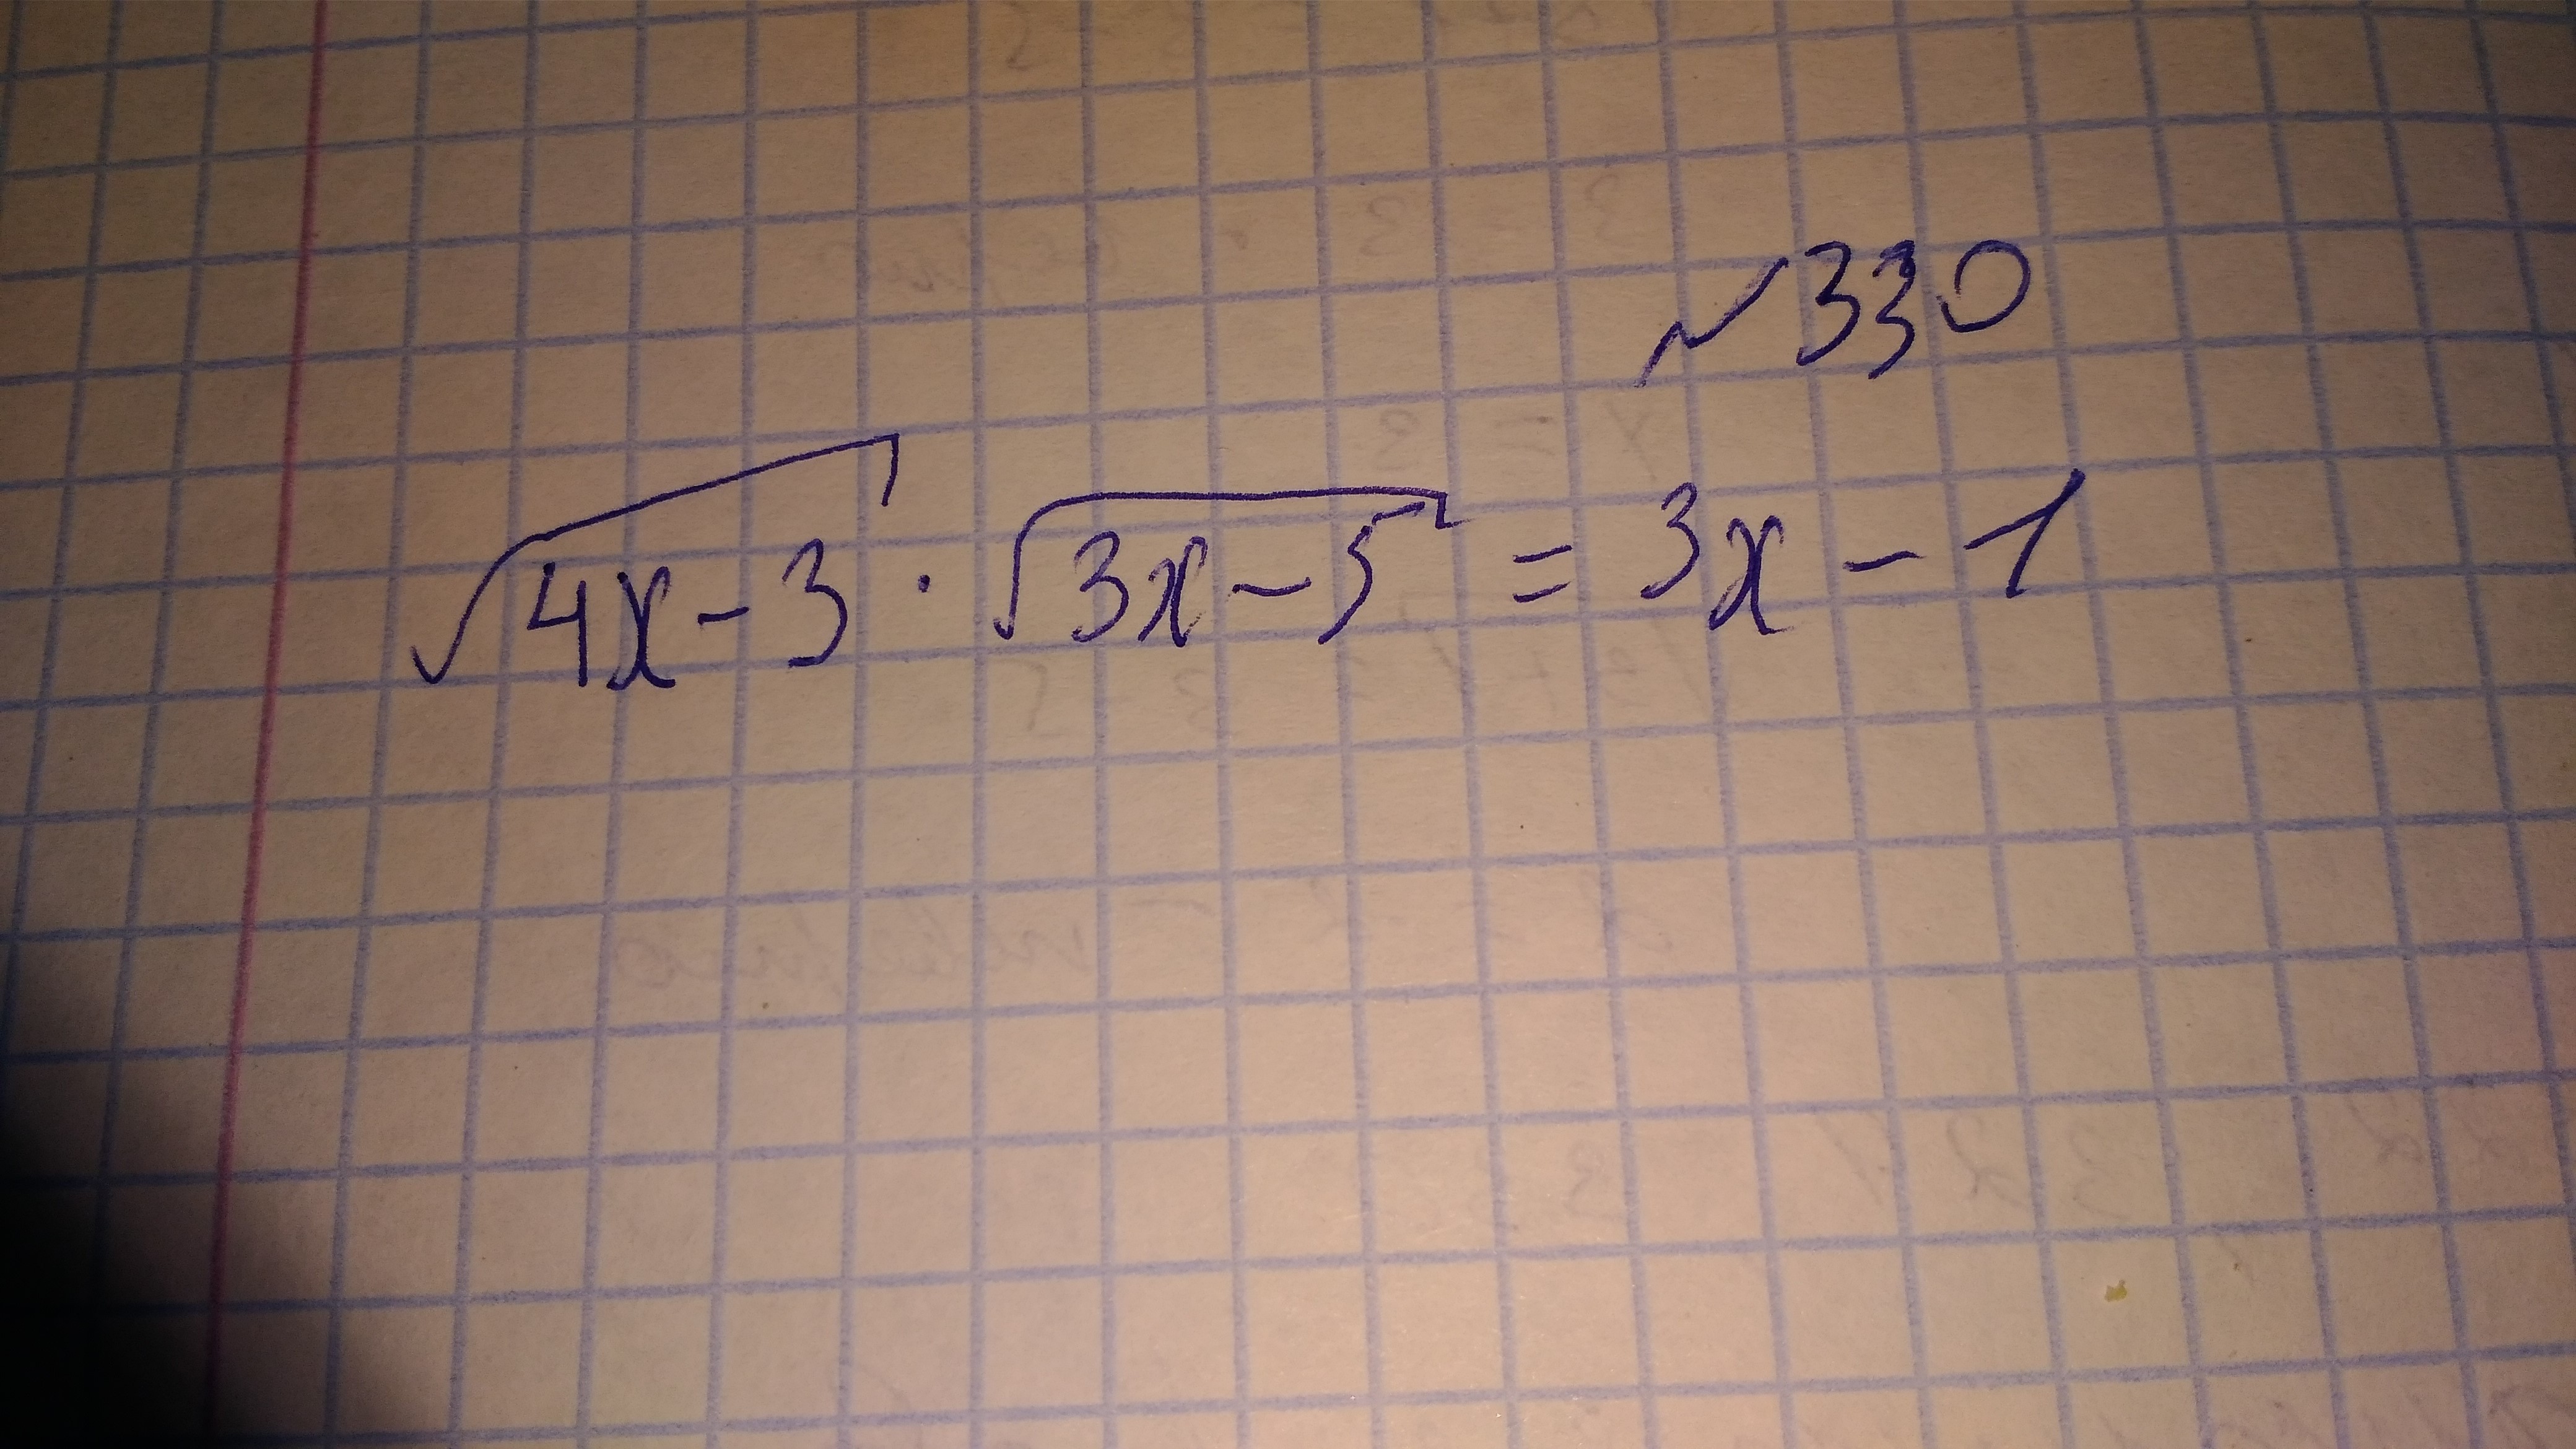 №330
√4x-3 · √3x-5 = 3x - 1